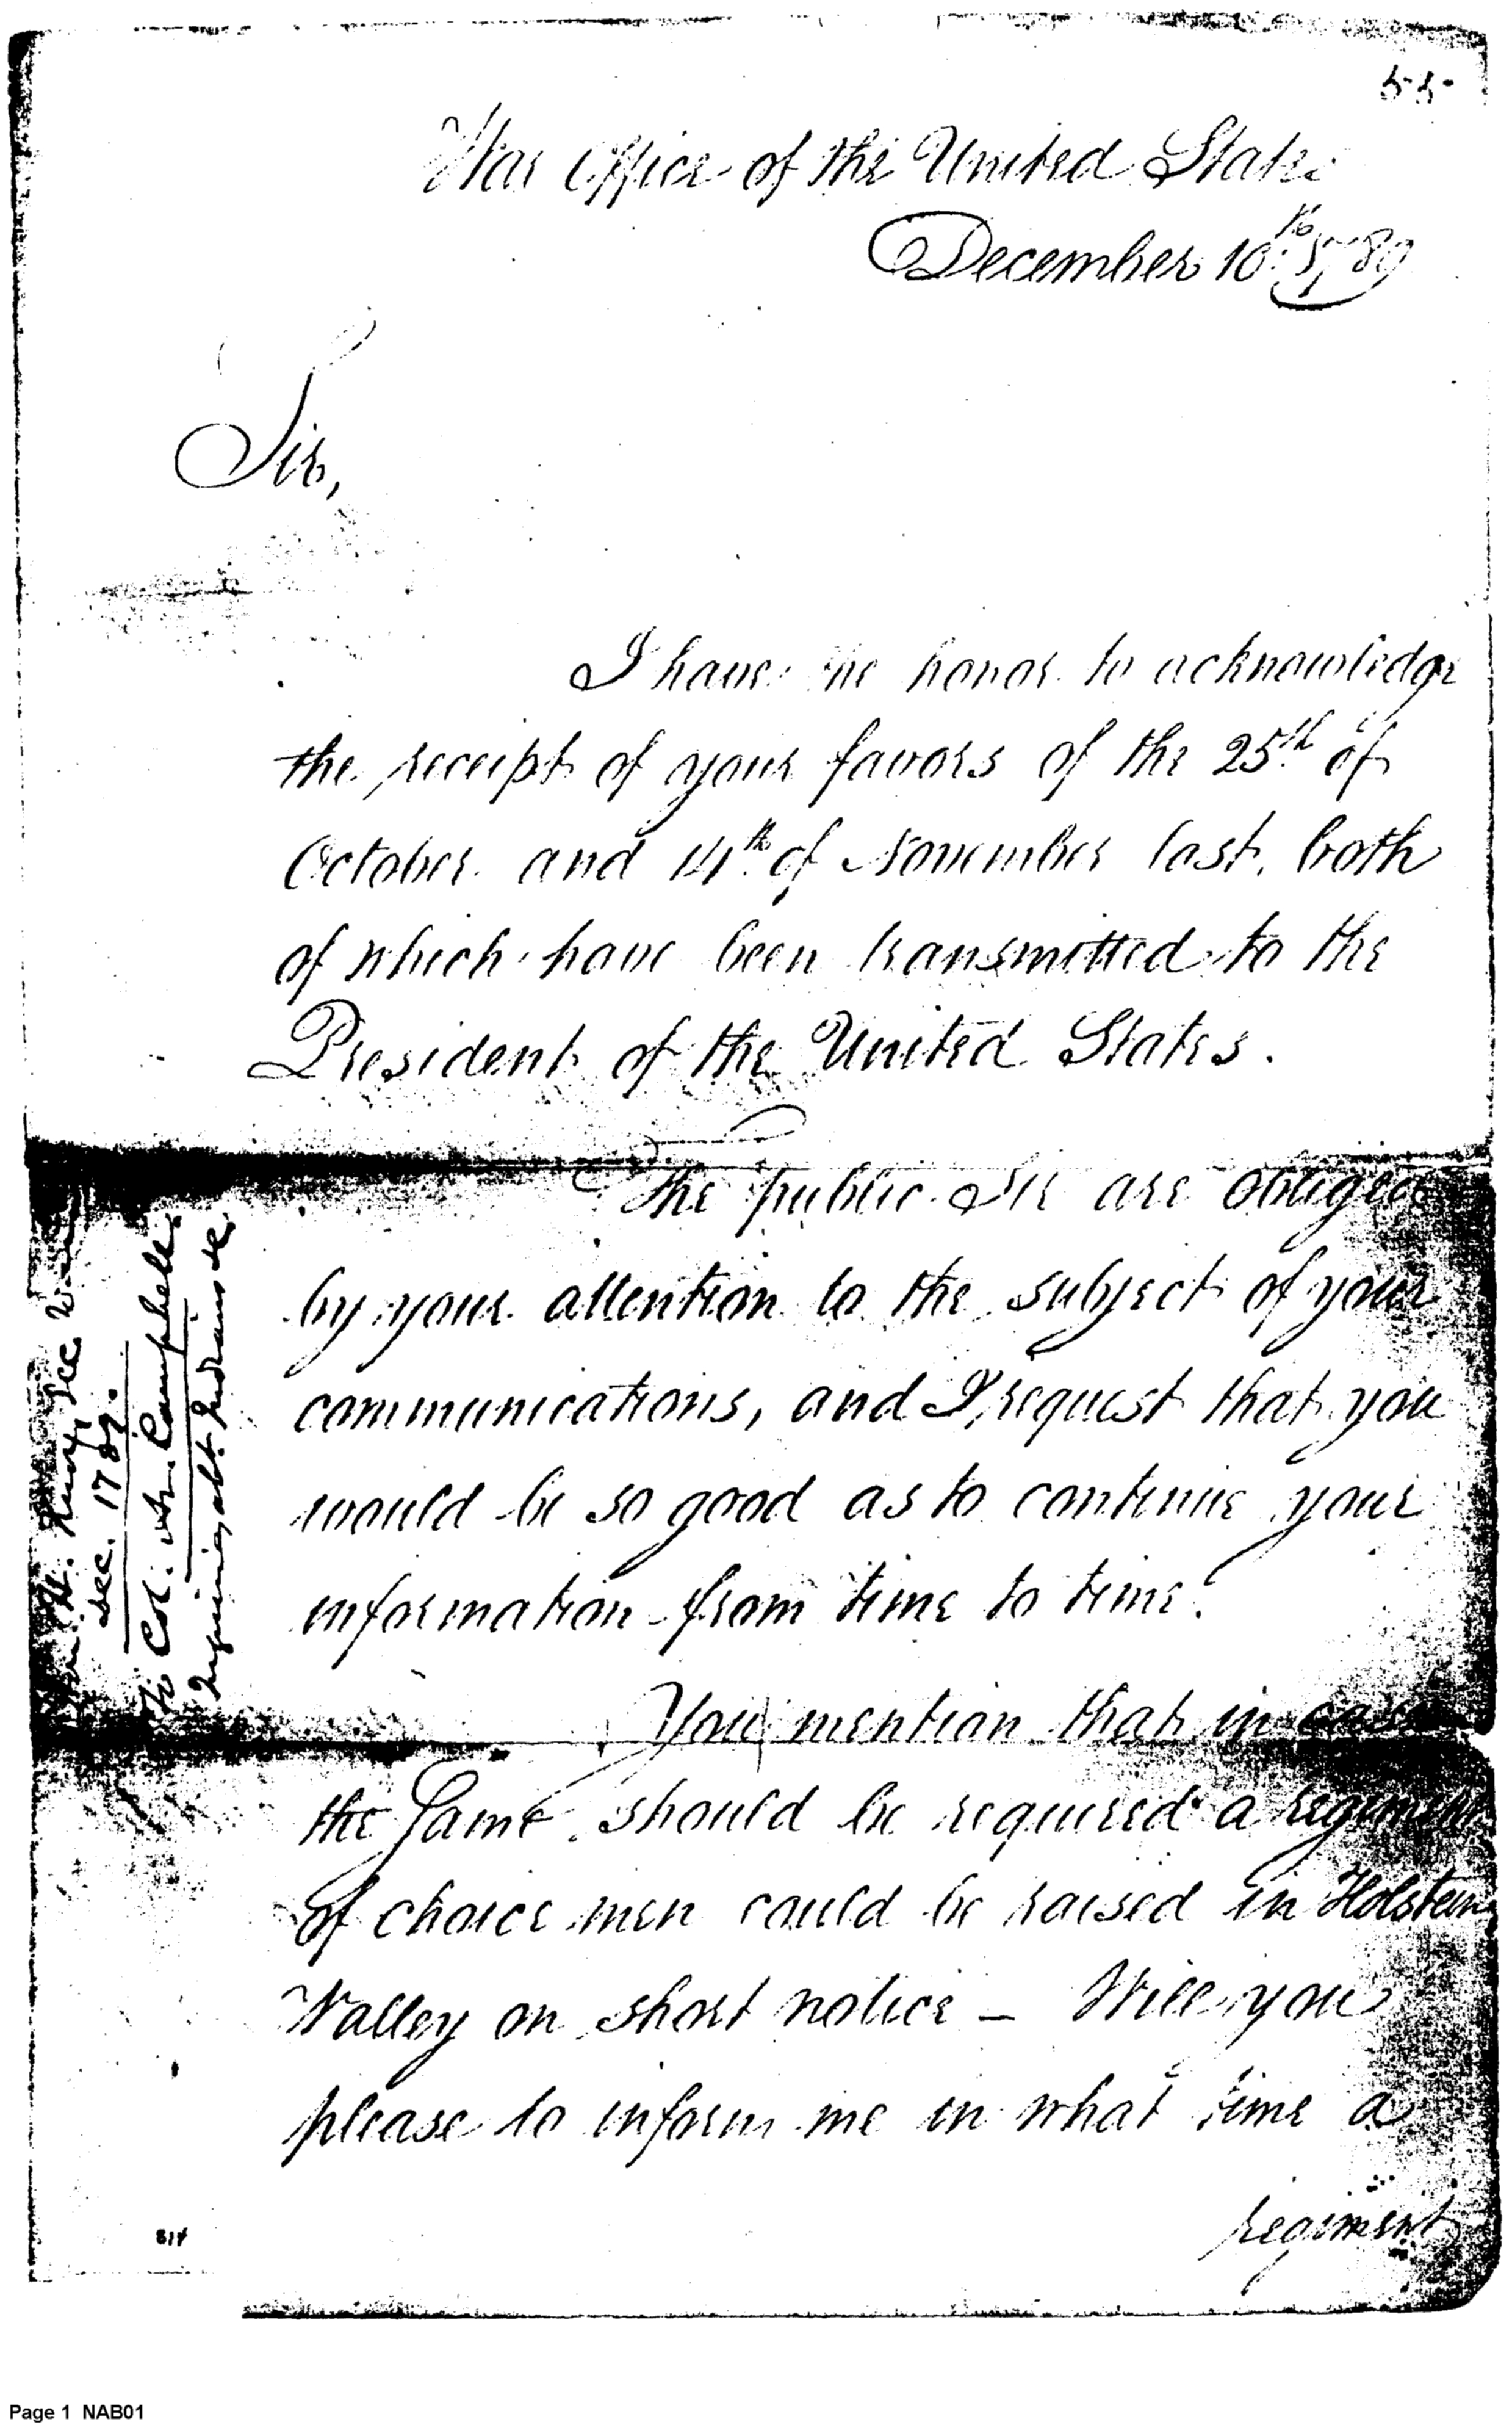 55
War Office of the United States
December 10th 1789
Sir,
I have the honor to acknowledge
the receipt of your favors of the 25th of
October and 14th of November last, both
of which have been transmitted to the
President of the United States.
The public Sir are obliged
by your attention to the subject of your
communications, and I request that you
would be so good as to continue your
information from time to time.
You mention that in case
the same should be required a regiment
of choice men could be raised in Holstein
Valley on short notice – Will you
please to inform me in what time a
regiment
H. Knox, Sec War
Dec. 1789.
To Col. Ar. Campbell.
Inquiring abt. Indians &c.
814
Page 1 NAB01